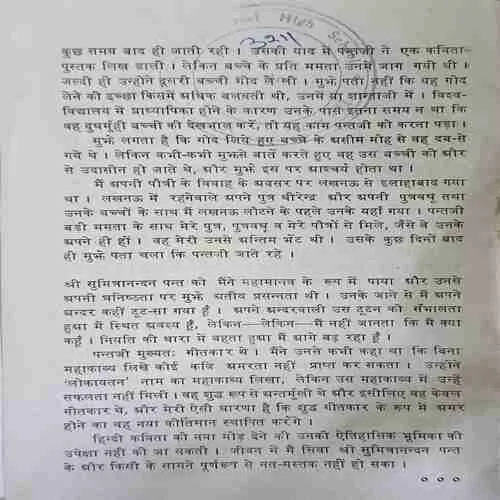 High Sc
3211
कुछ समय बाद ही जाती रही । उसकी याद में पन्तजी ने एक कविता-
पुस्तक लिख डाली । लेकिन बच्चे के प्रति ममता उनमें जाग गयी थी ।
जल्दी ही उन्होंने दूसरी बच्ची गोद ले ली । मुझे पता नहीं कि वह गोद
लेने की इच्छा किसमें अधिक बलवती थी, उनमें या शान्ताजी में । विश्व-
विद्यालय में प्राध्यापिका होने के कारण उनके पास इतना समय न था कि
वह दुधमुँही बच्ची की देखभाल करें, तो यह काम पन्तजी को करना पड़ा ।
मुझे लगता है कि गोद लिये हुए बच्चे के असीम मोह से वह दब-से
गये थे । लेकिन कभी-कभी मुझसे बातें करते हुए वह उस बच्ची की ओर
से उदासीन हो जाते थे, और मुझे इस पर आश्चर्य होता था ।
मैं अपनी पौत्री के विवाह के अवसर पर लखनऊ से इलाहाबाद गया
था । लखनऊ में रहनेवाले अपने पुत्र धीरेन्द्र और अपनी पुत्रवधू तथा
उनके बच्चों के साथ मैं लखनऊ लौटने के पहले उनके यहाँ गया । पन्तजी
बड़ी ममता के साथ मेरे पुत्र, पुत्रवधू व मेरे पौत्रों से मिले, जैसे वे उनके
अपने ही हों । वह मेरी उनसे अन्तिम भेंट थी । उसके कुछ दिनों बाद
ही मुझे पता चला कि पन्तजी जाते रहे ।
श्री सुमित्रानन्दन पन्त को मैंने महामानव के रूप में पाया और उनसे
अपनी घनिष्ठता पर मुझे अतीव प्रसन्नता थी । उनके जाने से मैं अपने
अन्दर कहीं टूट-सा गया हूँ । अपने अन्दरवाली उस टूटन को सँभालता
हुआ मैं स्थित अवश्य हूँ, लेकिन—लेकिन—मैं नहीं जानता कि मैं क्या
कहूँ । नियति की धारा में बहता हुआ मैं आगे बढ़ रहा हूँ ।
पन्तजी मुख्यतः गीतकार थे । मैंने उनसे कभी कहा था कि बिना
महाकाव्य लिखे कोई कवि अमरता नहीं प्राप्त कर सकता । उन्होंने
'लोकायतन' नाम का महाकाव्य लिखा, लेकिन उस महाकाव्य में उन्हें
सफलता नहीं मिली । वह शुद्ध रूप से अन्तर्मुखी थे और इसीलिए वह केवल
गीतकार थे, और मेरी ऐसी धारणा है कि शुद्ध गीतकार के रूप में अमर
होने का वह नया कीर्तिमान स्थापित करेंगे ।
हिन्दी कविता को नया मोड़ देने की उनकी ऐतिहासिक भूमिका की
उपेक्षा नहीं की जा सकती । जीवन में मैं सिवा श्री सुमित्रानन्दन पन्त
के और किसी के सामने पूर्णरूप से नत-मस्तक नहीं हो सका ।
० ० ०